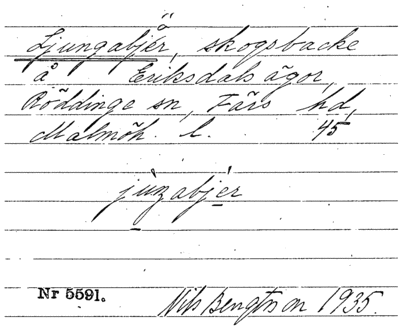 Ljungabjär, skogsbacke
å Eriksdals ägor,
Röddinge sn, Färs hd,
Malmöh. l. 45
Nr 5591.
Nils Bengtsson 1935.